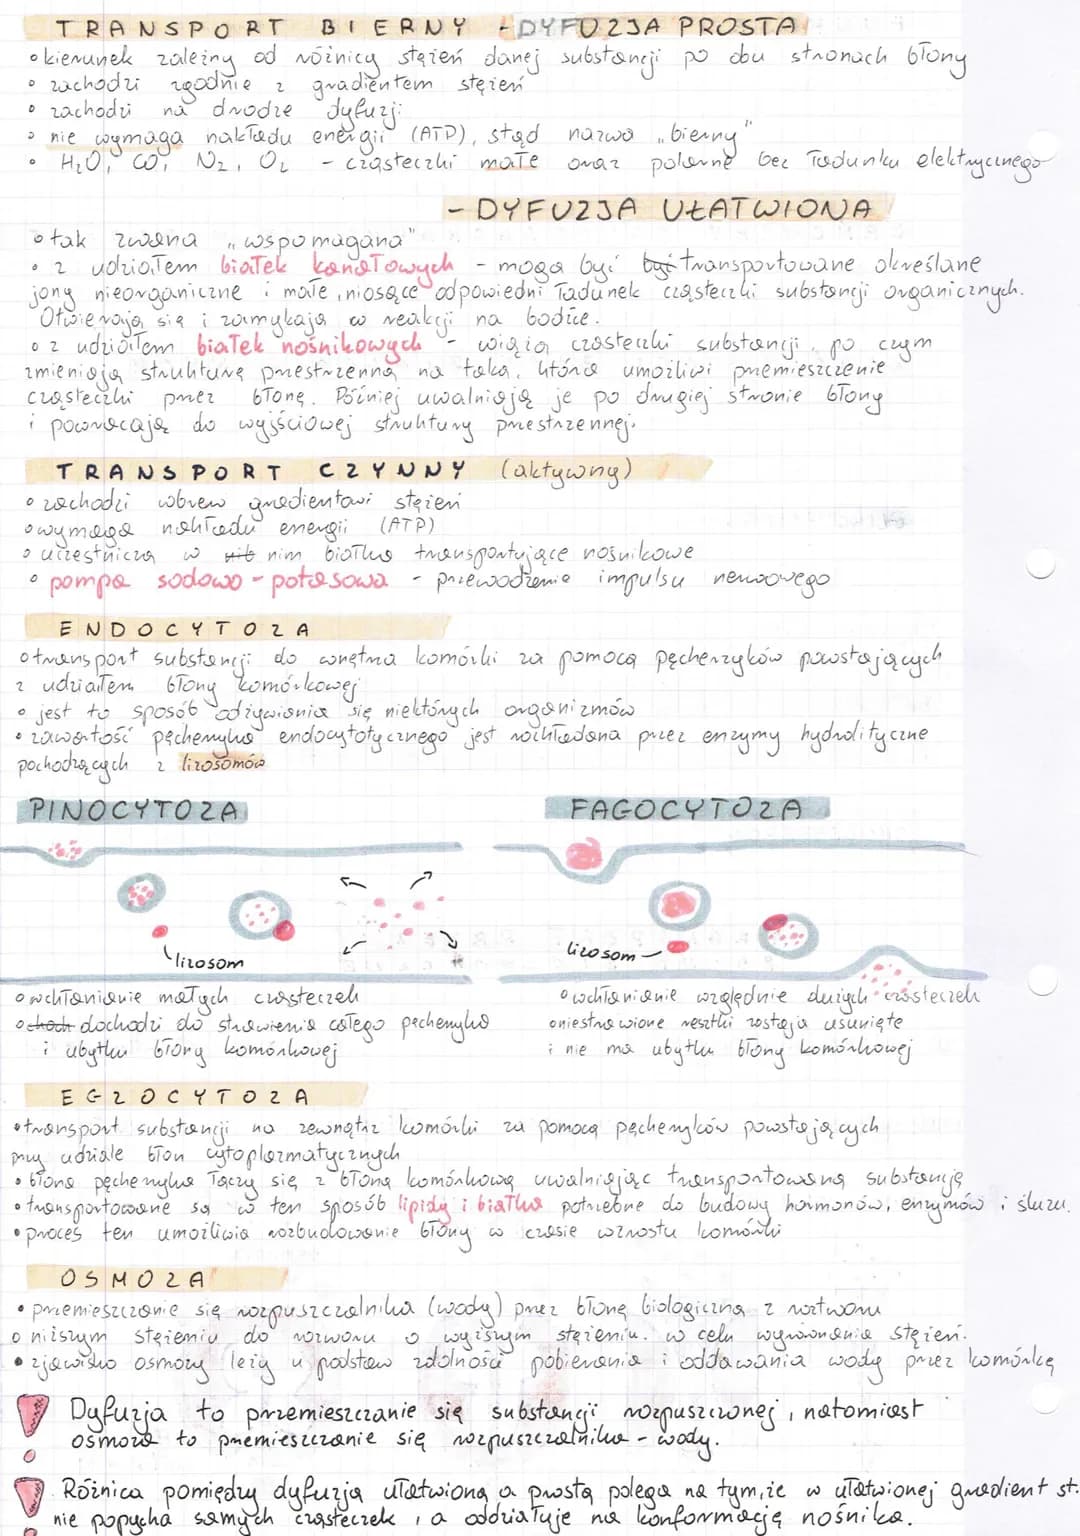 TRANSPORT BIERNY - DYFUZJA PROSTA
• kierunek zależny od różnicy stężeń danej substancji po obu stronach błony
• zachodzi zgodnie z gradientem stężeń
• zachodzi na drodze dyfuzji
• nie wymaga nakładu energii (ATP), stąd nazwa "bierny"
• H₂O, CO, N₂, O₂ - cząsteczki małe oraz polarne bez ładunku elektrycznego
- DYFUZJA UŁATWIONA
• tak zwana "wspomagana"
• z udziałem białek kanałowych - mogą być być transportowane określane
jony nieorganiczne i małe, niosące odpowiedni ładunek cząsteczki substancji organicznych.
Otwierają się i zamykają w reakcji na bodźce.
• z udziałem białek nośnikowych - wiążą cząsteczki substancji, po czym
zmieniają strukturę przestrzenną na taką, która umożliwi przemieszczenie
cząsteczki przez błonę. Później uwalniają je po drugiej stronie błony
i powracają do wyjściowej struktury przestrzennej.
TRANSPORT CZYNNY (aktywny)
• zachodzi wbrew gradientowi stężeń
• wymaga nakładu energii (ATP)
• uczestniczą w nim białka transportujące nośnikowe
• pompa sodowo-potasowa - przewodzenie impulsu nerwowego
ENDOCYTOZA
• transport substancji do wnętrza komórki za pomocą pęcherzyków powstających
z udziałem błony komórkowej
• jest to sposób odżywiania się niektórych organizmów
• zawartość pęcherzyka endocytotycznego jest rozkładana przez enzymy hydrolityczne
pochodzących z lizosomów
PINOCYTOZA FAGOCYTOZA
lizosom
lizosom
• wchłanianie małych cząsteczek
• dochodzi do strawienia całego pęcherzyka
i ubytku błony komórkowej
• wchłanianie względnie dużych cząsteczek
• niestrawione resztki zostają usunięte
i nie ma ubytku błony komórkowej
EGZOCYTOZA
• transport substancji na zewnątrz komórki za pomocą pęcherzyków powstających
przy udziale błon cytoplazmatycznych
• błona pęcherzyka łączy się z błoną komórkową uwalniając transportowaną substancję
• transportowane są w ten sposób lipidy i białka potrzebne do budowy hormonów, enzymów i śluzu.
• proces ten umożliwia rozbudowanie błony w czasie wzrostu komórki
OSMOZA
• przemieszczanie się rozpuszczalnika (wody) przez błonę biologiczną z roztworu
o niższym stężeniu do rozworu o wyższym stężeniu. w celu wyrównania stężeń.
• zjawisko osmozy leży u podstaw zdolności pobierania i oddawania wody przez komórkę
Dyfuzja to przemieszczanie się substancji rozpuszczonej, natomiast
osmoza to przemieszczanie się rozpuszczalnika - wody.
Różnica pomiędzy dyfuzją ułatwioną a prostą polega na tym, że w ułatwionej gradient st.
nie popycha samych cząsteczek, a oddziałuje na konformację nośnika.